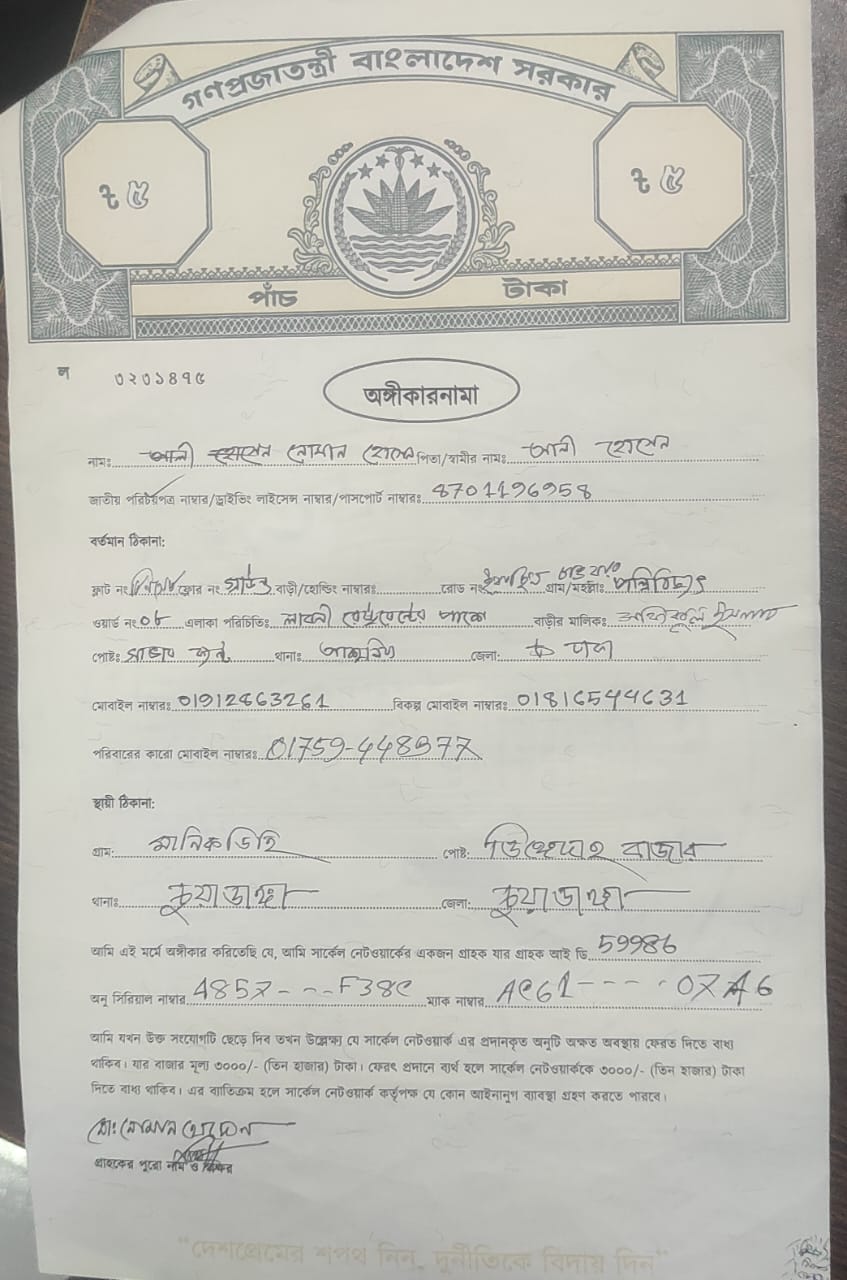 গণপ্রজাতন্ত্রী বাংলাদেশ সরকার
৳ ৫ ৳ ৫
পাঁচ টাকা
ল ৩২৩১৪৭৫
অঙ্গীকারনামা
নামঃ আলী হোসেন নোমান হোসেন পিতা/স্বামীর নামঃ আলী হোসেন
জাতীয় পরিচয়পত্র নাম্বার/ড্রাইভিং লাইসেন্স নাম্বার/পাসপোর্ট নাম্বারঃ 8701196958
বর্তমান ঠিকানা:
ফ্লাট নং ফ্লোর নং বাড়ী/হোল্ডিং নাম্বারঃ রোড নং গ্রাম/মহল্লাঃ
ওয়ার্ড নং ০৮ এলাকা পরিচিতিঃ লাবনী বাড়ীর মালিকঃ
পোষ্টঃ সাভার থানাঃ জেলা: ঢাকা
মোবাইল নাম্বারঃ 01912863261 বিকল্প মোবাইল নাম্বারঃ 01816544631
পরিবারের কারো মোবাইল নাম্বারঃ
স্থায়ী ঠিকানা:
গ্রাম: মানিকডিহি পোষ্ট: বাজার
থানাঃ চুয়াডাঙ্গা জেলা: চুয়াডাঙ্গা
আমি এই মর্মে অঙ্গীকার করিতেছি যে, আমি সার্কেল নেটওয়ার্কের একজন গ্রাহক যার গ্রাহক আই ডি 59986
অনু সিরিয়াল নাম্বার 4857---F38C ম্যাক নাম্বার AC61----07A6
আমি যখন উক্ত সংযোগটি ছেড়ে দিব তখন উল্লেক্ষ্য যে সার্কেল নেটওয়ার্ক এর প্রদানকৃত অনুটি অক্ষত অবস্থায় ফেরত দিতে বাধ্য
থাকিব। যার বাজার মূল্য ৩০০০/- (তিন হাজার) টাকা। ফেরৎ প্রদানে ব্যর্থ হলে সার্কেল নেটওয়ার্ককে ৩০০০/- (তিন হাজার) টাকা
দিতে বাধ্য থাকিব। এর ব্যতিক্রম হলে সার্কেল নেটওয়ার্ক কর্তৃপক্ষ যে কোন আইনানুগ ব্যবস্থা গ্রহণ করতে পারবে।
মোঃ নোমান হোসেন
গ্রাহকের পুরো নাম ও স্বাক্ষর
“দেশপ্রেমের শপথ নিন, দুর্নীতিকে বিদায় দিন”